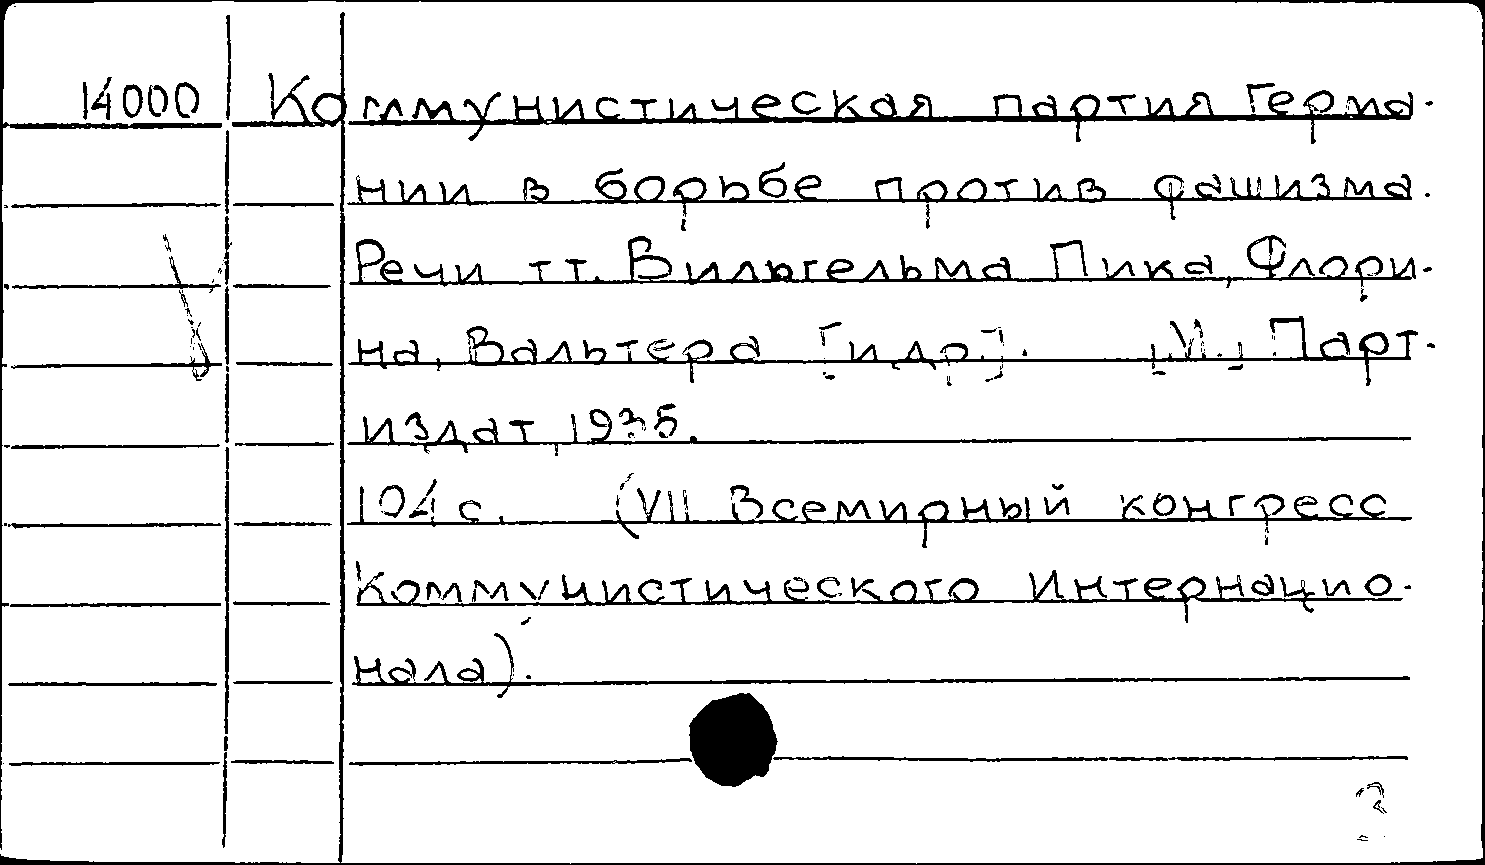 14000 Коммунистическая партия Герма-
нии в борьбе против фашизма.
Речи т.т. Вильгельма Пика, Флори-
на, Вальтера [и др.]. [М.] Парт-
издат, 1935.
104 с. (VII Всемирный конгресс
Коммунистического Интернацио-
нала).